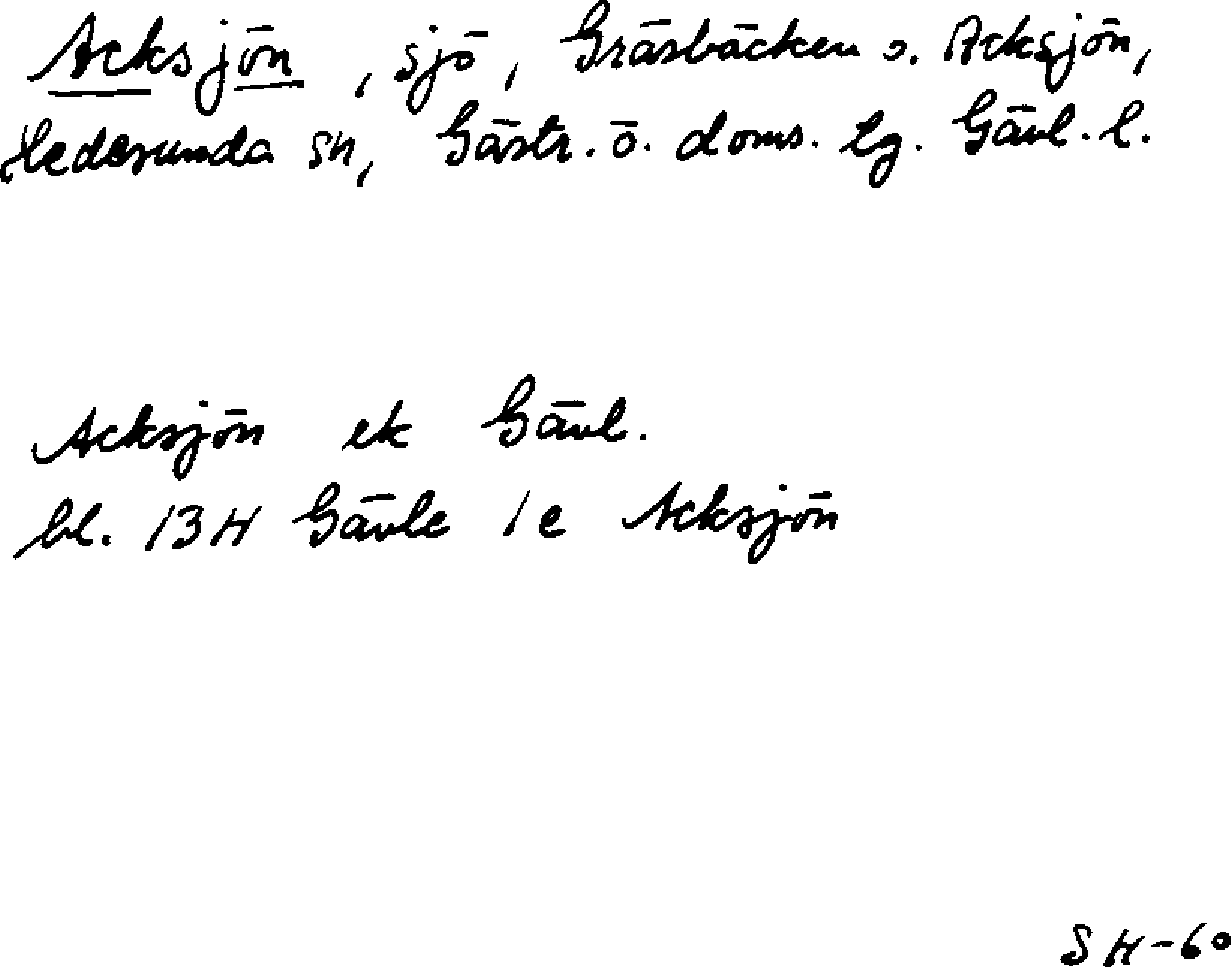 Acksjön, sjö, Gräsbäcken o. Acksjön,
Hedesunda sn, Gästr. ö. doms. lg. Gävl. l.
Acksjön ek Gävl.
bl. 13H Gävle 1e Acksjön
SH-60